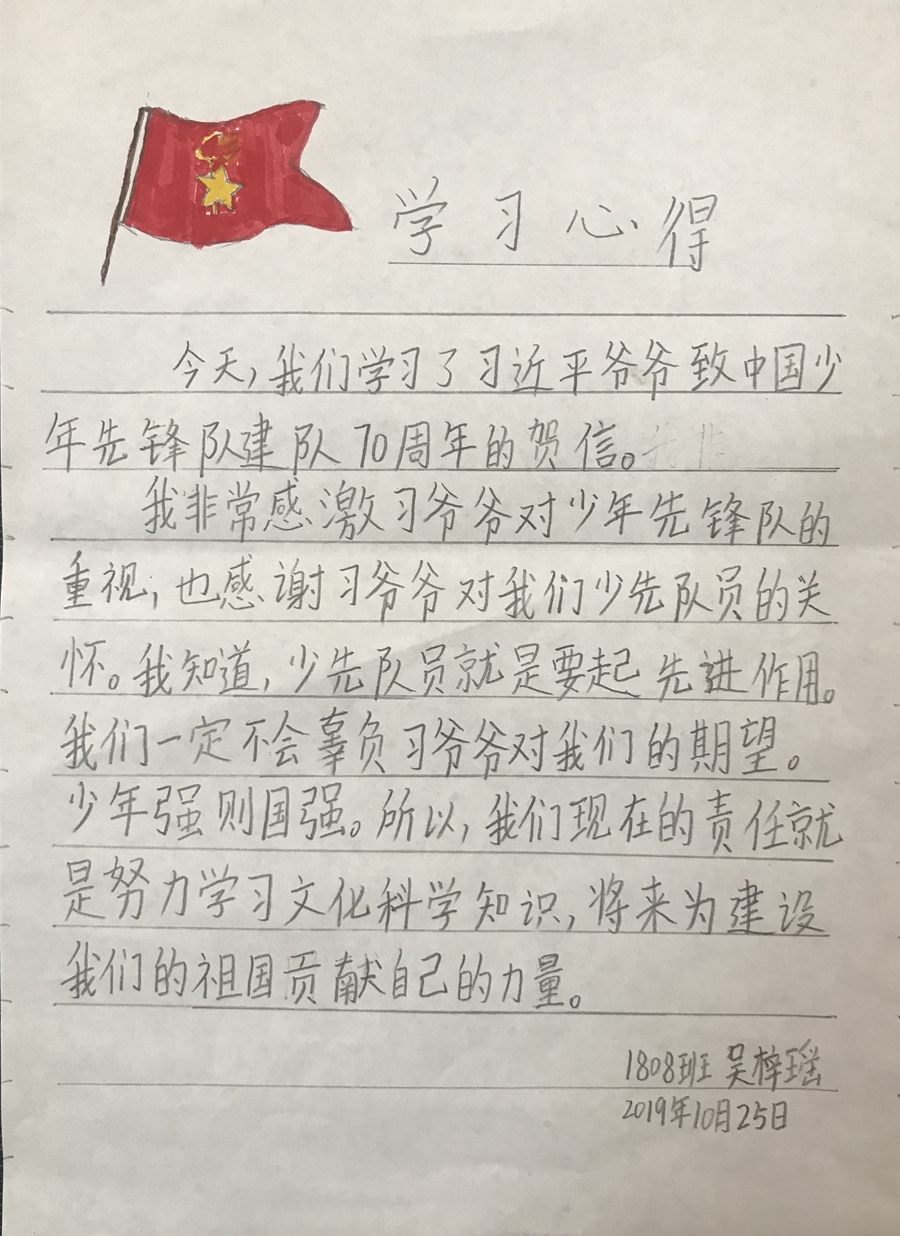 学习心得
今天,我们学习了习近平爷爷致中国少
年先锋队建队70周年的贺信。
我非常感激习爷爷对少年先锋队的
重视,也感谢习爷爷对我们少先队员的关
怀。我知道,少先队员就是要起先进作用。
我们一定不会辜负习爷爷对我们的期望。
少年强则国强。所以,我们现在的责任就
是努力学习文化科学知识,将来为建设
我们的祖国贡献自己的力量。
1808班 吴梓瑶
2019年10月25日